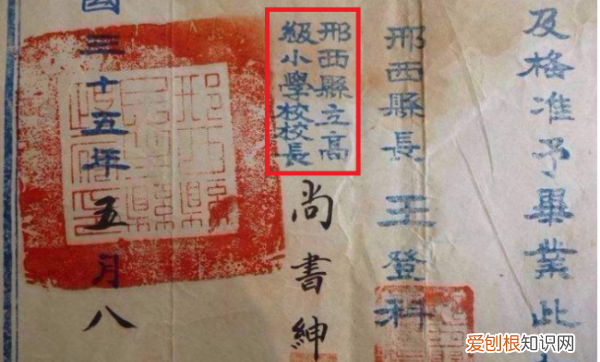 及格准予畢業此
邢西縣長 王登科
邢西縣立高
級小學校校長
尚書紳
國三十五年五月八
爱刨根知识网